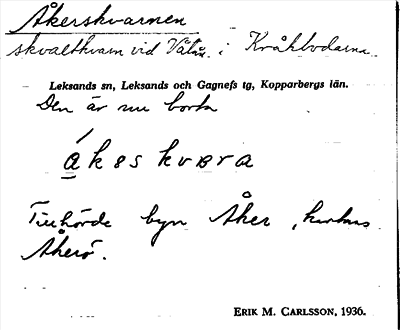 Åkerskvarnen
skvaltkvarn vid Vålån. i Kråkbodarna
Leksands sn, Leksands och Gagnefs tg, Kopparbergs län.
Den är nu borta
ákeskvərə
Tillhörde byn Åker,
Åkerö.
ERIK M. CARLSSON, 1936.